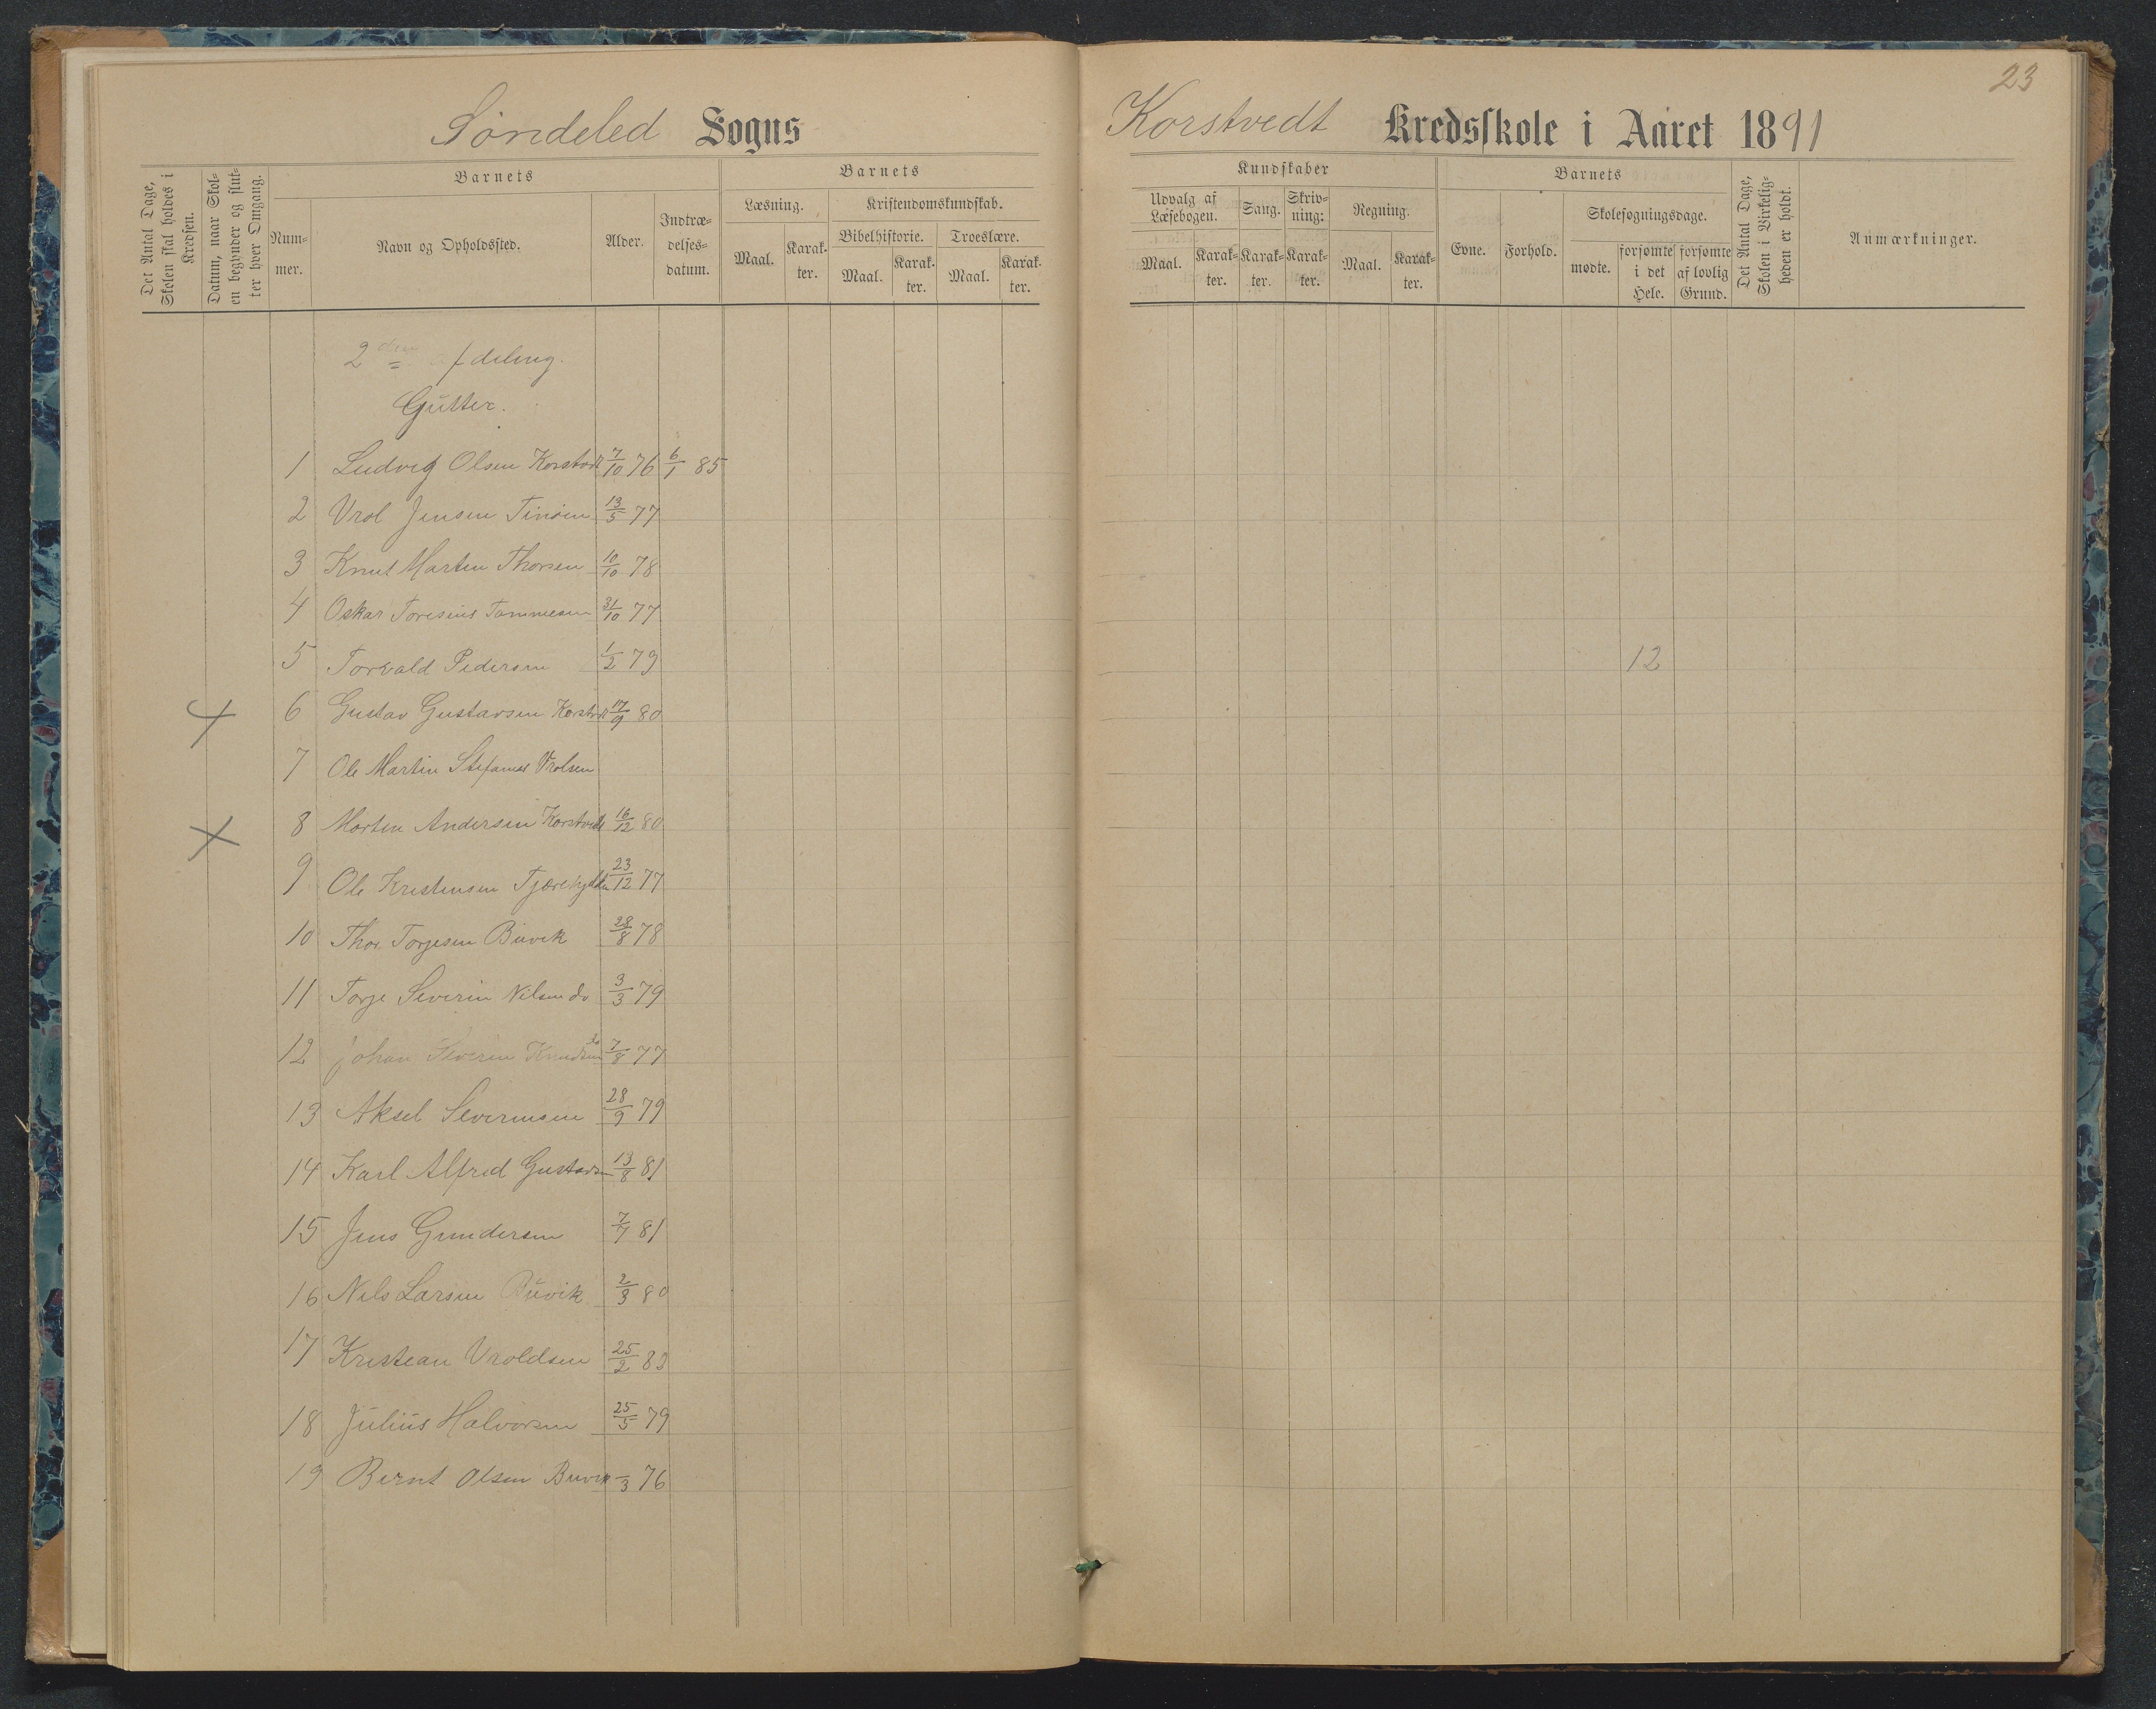 23
Söndeled Sogns
Korstvedt Kredsskole i Aaret 1891
Det Antal Dage, Skolen skal holdes i Kredsen.
Datum, naar Skolen begynder og slutter hver Omgang.
Barnets
Nummer.
Navn og Opholdssted.
Alder.
Indtrædelsesdatum.
Barnets
Læsning.
Maal.
Karakter.
Kristendomskundskab.
Bibelhistorie.
Maal.
Karakter.
Troeslære.
Maal.
Karakter.
Kundskaber
Udvalg af Læsebogen.
Maal.
Karakter.
Sang.
Karakter.
Skrivning:
Karakter.
Regning.
Maal.
Karakter.
Barnets
Evne.
Forhold.
Skolesøgningsdage.
mødte.
forsømte i det Hele.
forsømte af lovlig Grund.
Det Antal Dage, Skolen i Virkeligheden er holdt.
Anmærkninger.
2den Afdeling.
Gutter.
1 Ludvig Olsen Korstvedt 7/10 76 6/1 85
2 Vrol Jensen 13/5 77
3 Knut Martin Thorsen 10/10 78
4 Oskar Toresius Tommesen 31/10 77
5 Torvald Pedersen 1/2 79 12
6 Gustav Gustavsen Korstvedt 17/9 80
7 Ole Martin Stefanus Vrolsen
8 Morten Andersen Korstvedt 16/12 80
9 Ole Kristensen 23/12 77
10 Thor Torjesen Buvik 28/8 78
11 Torje Severin Nilsen do 3/3 79
12 Johan Severin Knudsen do 7/8 77
13 Aksel Severinsen 28/9 79
14 Karl Alfred Gustavsen 13/8 81
15 Jens Gundersen 7/7 81
16 Nils Larsen Buvik 2/3 80
17 Kristean Vroldsen 25/2 83
18 Julius Halvorsen 25/5 79
19 Bernt Olsen Buvik /3 76